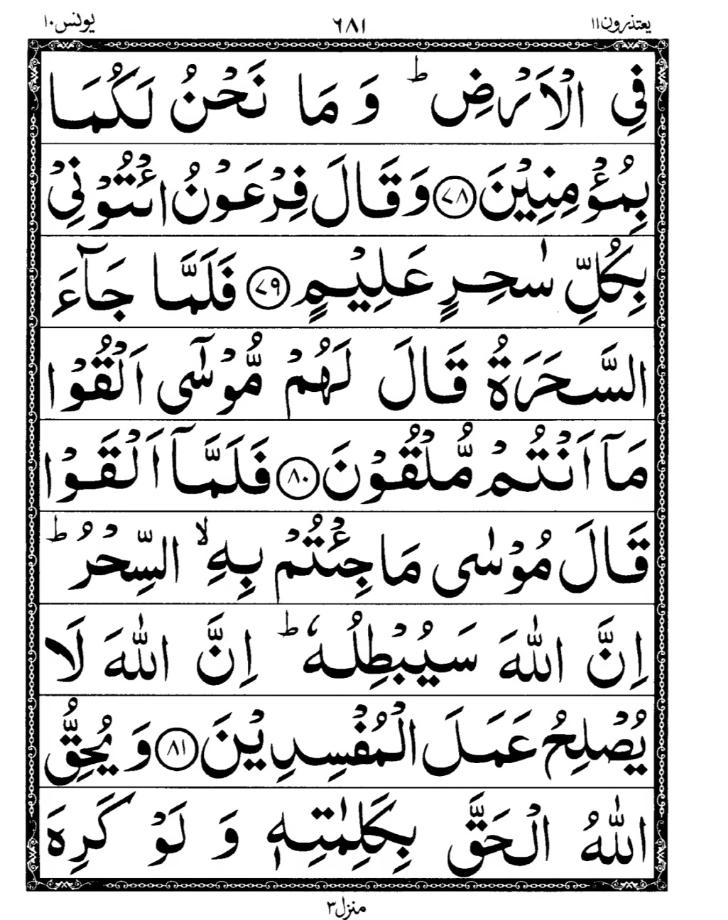 یعتذرون۱۱ ۶۸۱ یونس۱۰
فِي الْاَرْضِ ؕ وَ مَا نَحْنُ لَكُمَا
بِمُؤْمِنِيْنَ ﴿۷۸﴾ وَقَالَ فِرْعَوْنُ ائْتُوْنِيْ
بِكُلِّ سٰحِرٍ عَلِيْمٍ ﴿۷۹﴾ فَلَمَّا جَآءَ
السَّحَرَةُ قَالَ لَهُمْ مُّوْسٰۤى اَلْقُوْا
مَاۤ اَنْتُمْ مُّلْقُوْنَ ﴿۸۰﴾ فَلَمَّاۤ اَلْقَوْا
قَالَ مُوْسٰى مَا جِئْتُمْ بِهِ ۙ السِّحْرُ ؕ
اِنَّ اللّٰهَ سَيُبْطِلُهٗ ؕ اِنَّ اللّٰهَ لَا
يُصْلِحُ عَمَلَ الْمُفْسِدِيْنَ ﴿۸۱﴾ وَ يُحِقُّ
اللّٰهُ الْحَقَّ بِكَلِمٰتِهٖ وَ لَوْ كَرِهَ
منزل۳